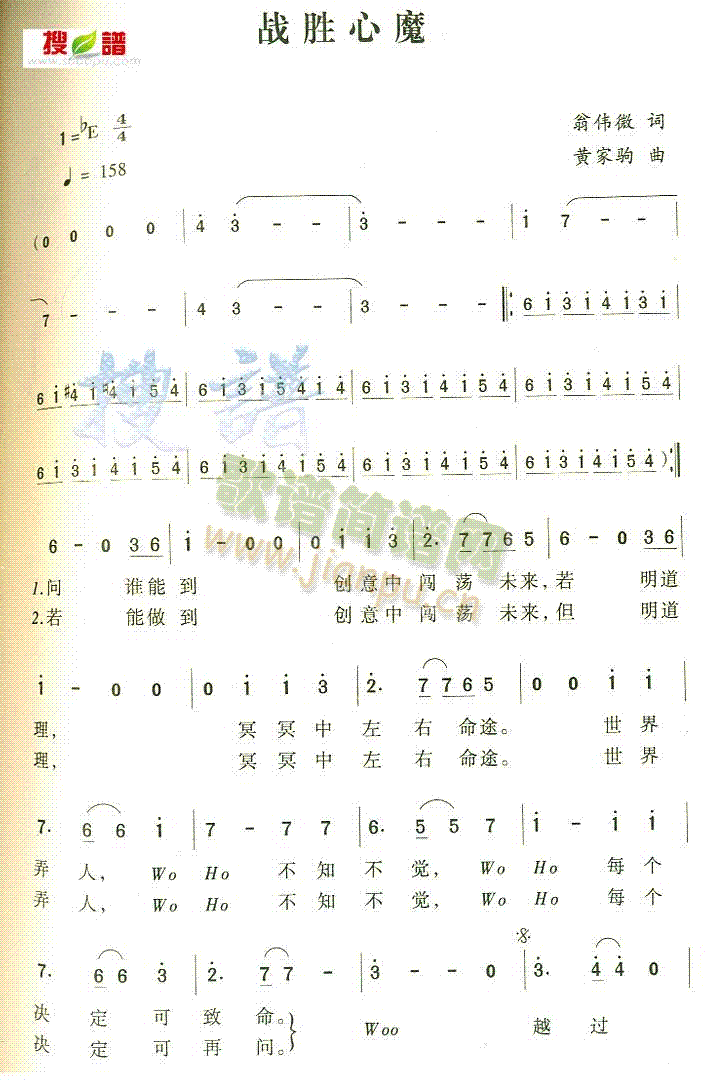 战胜心魔
搜谱
www.sooopu.com
1=♭E 4/4
翁伟微 词
♩= 158
黄家驹 曲
(0 0 0 0 | 4 3 - - | 3 - - - | i 7 - -
7 - - - | 4 3 - - | 3 - - - |: 6 i 3 i 4 i 3 i
6 i #4 i #4 i 5 4 | 6 i 3 i 5 4 i 4 | 6 i 3 i 4 i 5 4 | 6 i 3 i 4 i 5 4
搜谱
6 i 3 i 4 i 5 4 | 6 i 3 i 4 i 5 4 | 6 i 3 i 4 i 5 4 | 6 i 3 i 4 i 5 4 ) :|
歌谱简谱网
www.jianpu.cn
6 - 0 3 6 | i - 0 0 | 0 i i 3 | 2. 7 7 6 5 | 6 - 0 3 6
1.问 谁能到 创意中 闯荡 未来,若 明道
2.若 能做到 创意中 闯荡 未来,但 明道
i - 0 0 | 0 i i 3 | 2. 7 7 6 5 | 0 0 i i
理, 冥冥中 左右命途。 世界
理, 冥冥中 左右命途。 世界
7. 6 6 i | 7 - 7 7 | 6. 5 5 7 | i - i i
弄人, Wo Ho 不知不觉, Wo Ho 每个
弄人, Wo Ho 不知不觉, Wo Ho 每个
7. 6 6 3 | 2. 7 7 - | 3 - - 0 | 3. 4 4 0
决定可致命。 Woo 越过
决定可再问。